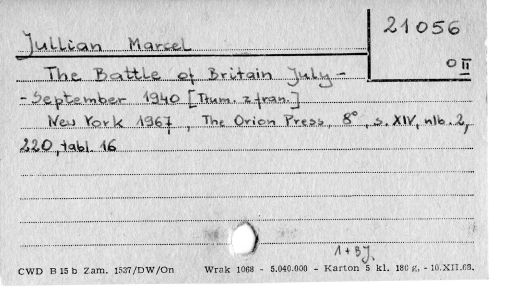 21056
0 II
Jullian Marcel
The Battle of Britain July -
- September 1940 [Tłum. z fran.]
New York 1967, The Orion Press, 8°, s. XIV, nlb. 2,
220, tabl. 16
1 + BJ.
CWD B 15 b Zam. 1537/DW/On Wrak 1068 - 5.040.000 - Karton 5 kl. 180 g. - 10.XII.68.